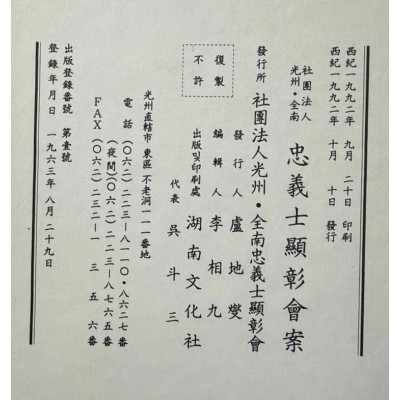 西紀一九九二年 九月 二十日 印刷
西紀一九九二年 十月 十日 發行
社團法人
光州·全南 忠義士顯彰會案
發行所 社團法人光州·全南忠義士顯彰會
發行人 盧地燮
編輯人 李相九
出版및印刷處 湖南文化社
代表 吳斗三
複製
不許
光州直轄市 東區 不老洞 一一一番地
電話 (〇六二) 二二三—八一一〇·八六二七番
(夜間) (〇六二) 二二三—八七六五番
FAX (〇六二) 二三二—一三五六番
出版登錄番號 第壹號
登錄年月日 一九六三年 八月 二十九日